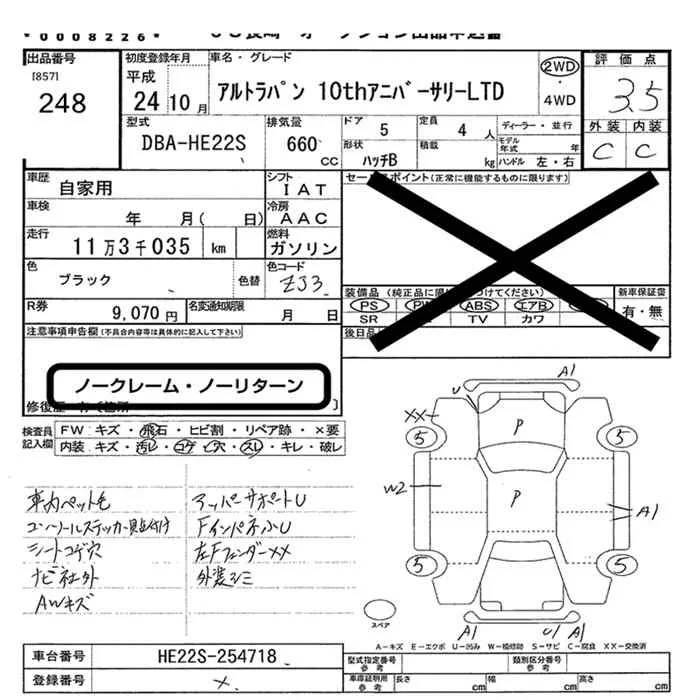 *0008226*
出品番号
[857]
248
初度登録年月
平成
24年10月
車名・グレード
アルトラパン 10thアニバーサリーLTD
2WD
・
4WD
評価点
3.5
外装 内装
C C
型式
DBA-HE22S
排気量
660
CC
ドア 5
定員 4 人
ディーラー・並行
形状
ハッチB
積載
kg
モデル年式 年
ハンドル 左・右
車歴
自家用
シフト
IAT
車検
年 月( 日)
冷房
AAC
走行
11万3千035 km
燃料
ガソリン
色
ブラック
色替
色コード
ZJ3
R券
9,070円
名変通知期限
月 日
セールスポイント(正常に機能するものに限ります)
PS
ABS
エアB
SR
TV
カワ
新車保証書
有・無
注意事項申告欄(不具合内容等は具体的に記入して下さい)
ノークレーム・ノーリターン
検査員
記入欄
FW キズ・飛石・ヒビ割・リペア跡・×要
内装 キズ・汚レ・コゲ・穴・スレ・キレ・破レ
車内ペット毛
シートコゲ穴
ナビ社外
AWキズ
アッパーサポートU
左Fフェンダー××
A1
U
××
P
5
5
W2
P
A1
5
5
スペア
A1
U1
A1
A-キズ E-エクボ U-凹み W-補修跡 S-サビ C-腐食 XX-交換済
車台番号
HE22S-254718
登録番号
×
型式指定番号
参考
類別区分番号
参考
車庫証明用
参考
長さ cm
幅 cm
高さ cm